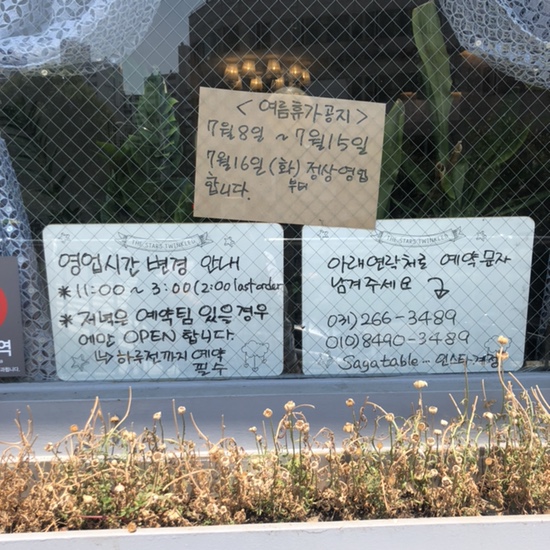 <여름휴가공지>
7월8일 ~ 7월15일
7월16일(화) 정상영업
부터
합니다.
THE STARS TWINKLE
영업시간 변경 안내
* 11:00 ~ 3:00 (2:00 last order
* 저녁은 예약팀 있을 경우
에만 OPEN 합니다.
↳ 하루전까지 예약
필수
THE STARS TWINKLE
아래연락처로 예약문자
남겨주세요
031) 266-3489
010) 8490-3489
Sagatable... 인스타계정
역